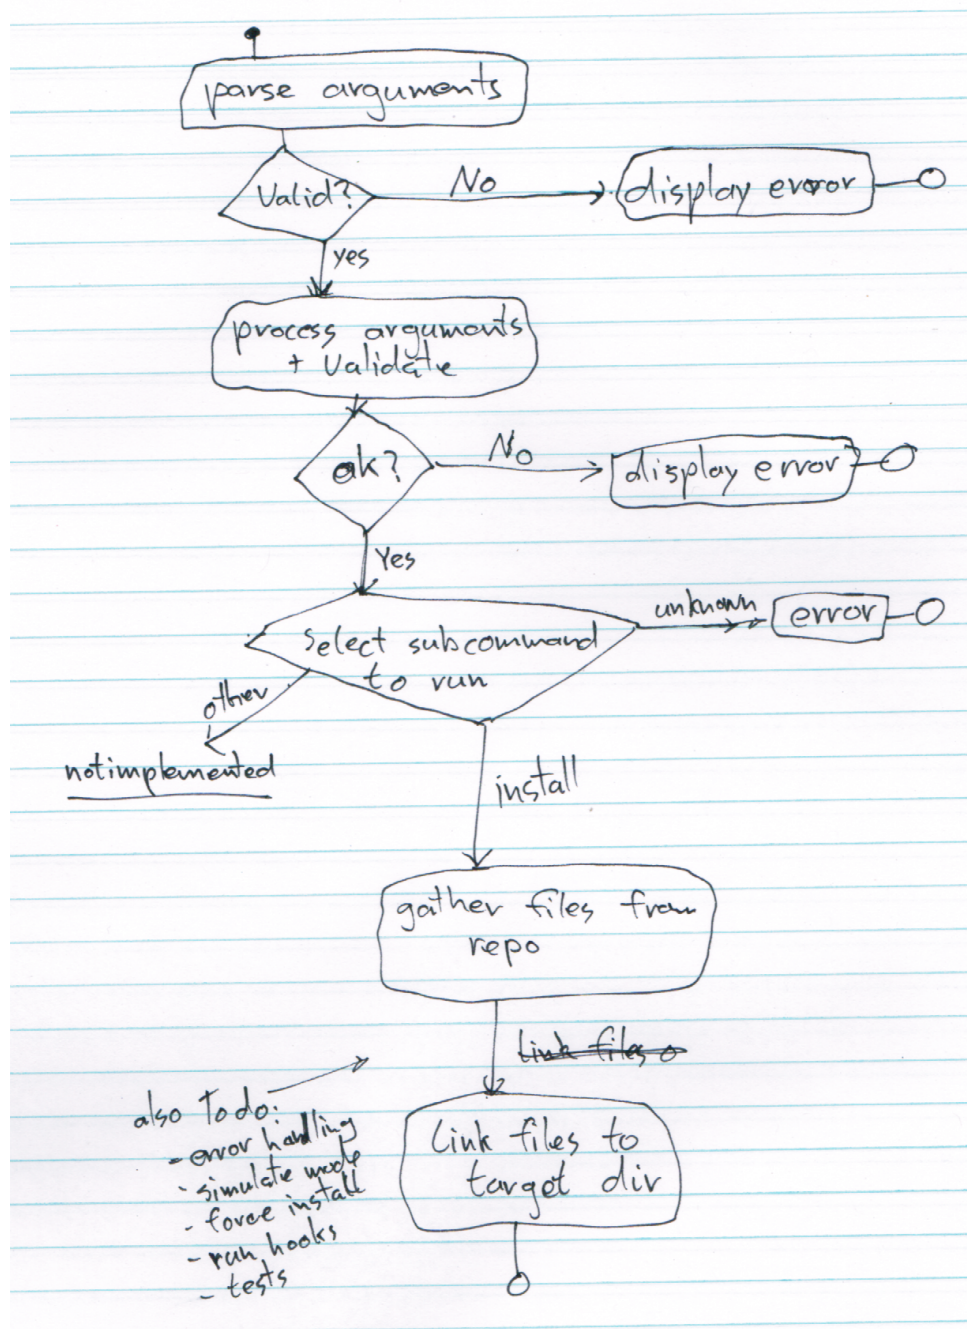 parse arguments
Valid?
No
display error
yes
process arguments
+ Validate
ok?
No
display error
Yes
Select subcommand
to run
unknown
error
other
not implemented
install
gather files from
repo
Link files o
also Todo:
- error handling
- simulate mode
- force install
- run hooks
- tests
Link files to
target dir